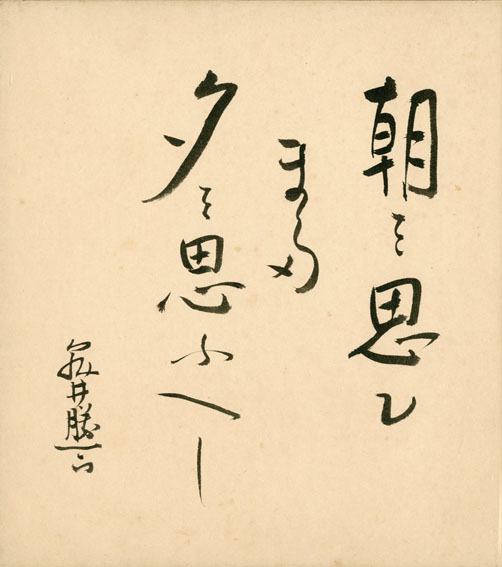 朝に思ひ
また
夕に思ふへし
亀井勝一郎